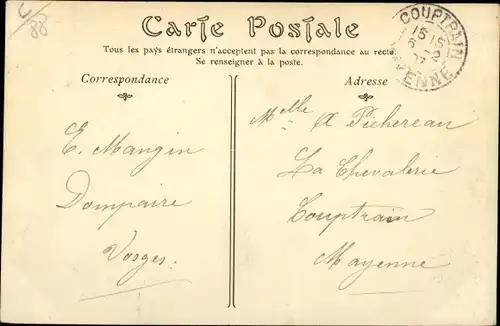 88
Carte Postale
Tous les pays étrangers n'acceptent pas la correspondance au recto.
Se renseigner à la poste.
COUPTRAIN
MAYENNE
Correspondance
Adresse
E. Mangin
Dompaire
Vosges.
Melle A Pichereau
La Chevalerie
Couptrain
Mayenne